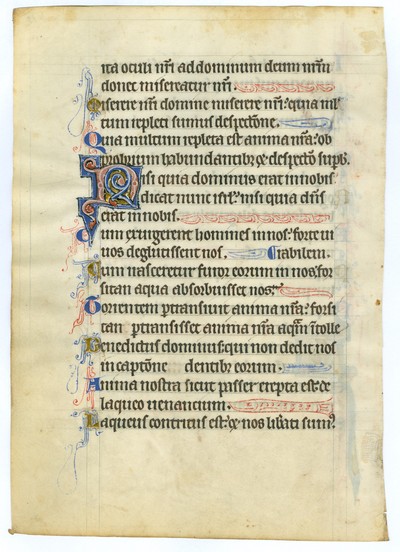 ita oculi nr̄i ad dominum deum nr̄um
donec misereatur nr̄i.
Miserere nr̄i domine miserere nr̄i: quia ml̄
tum repleti sumus despectōne.
Quia multum repleta est anima nr̄a: ob
probrium habundantibꝫ ⁊ despectō supb̄.
Nisi quia dominus erat in nobis
dicat nunc isrl̄: nisi quia dn̄s
erat in nobis.
Cum exurgerent homines in nos: forte vi
vos deglutissent nos. tiabilem.
Cum irasceretur furor eorum in nos: for
sitan aqua absorbuisset nos.
Torrentem ꝑtransivit anima nr̄a: forsi
tan ꝑtransisset anima nr̄a aquā ītolle
Benedictus dominus: qui non dedit nos
in captōne dentibꝫ eorum.
Anima nostra sicut passer erepta est: de
laqueo venancium.
Laqueus contritus est: ⁊ nos libati sumꝰ.